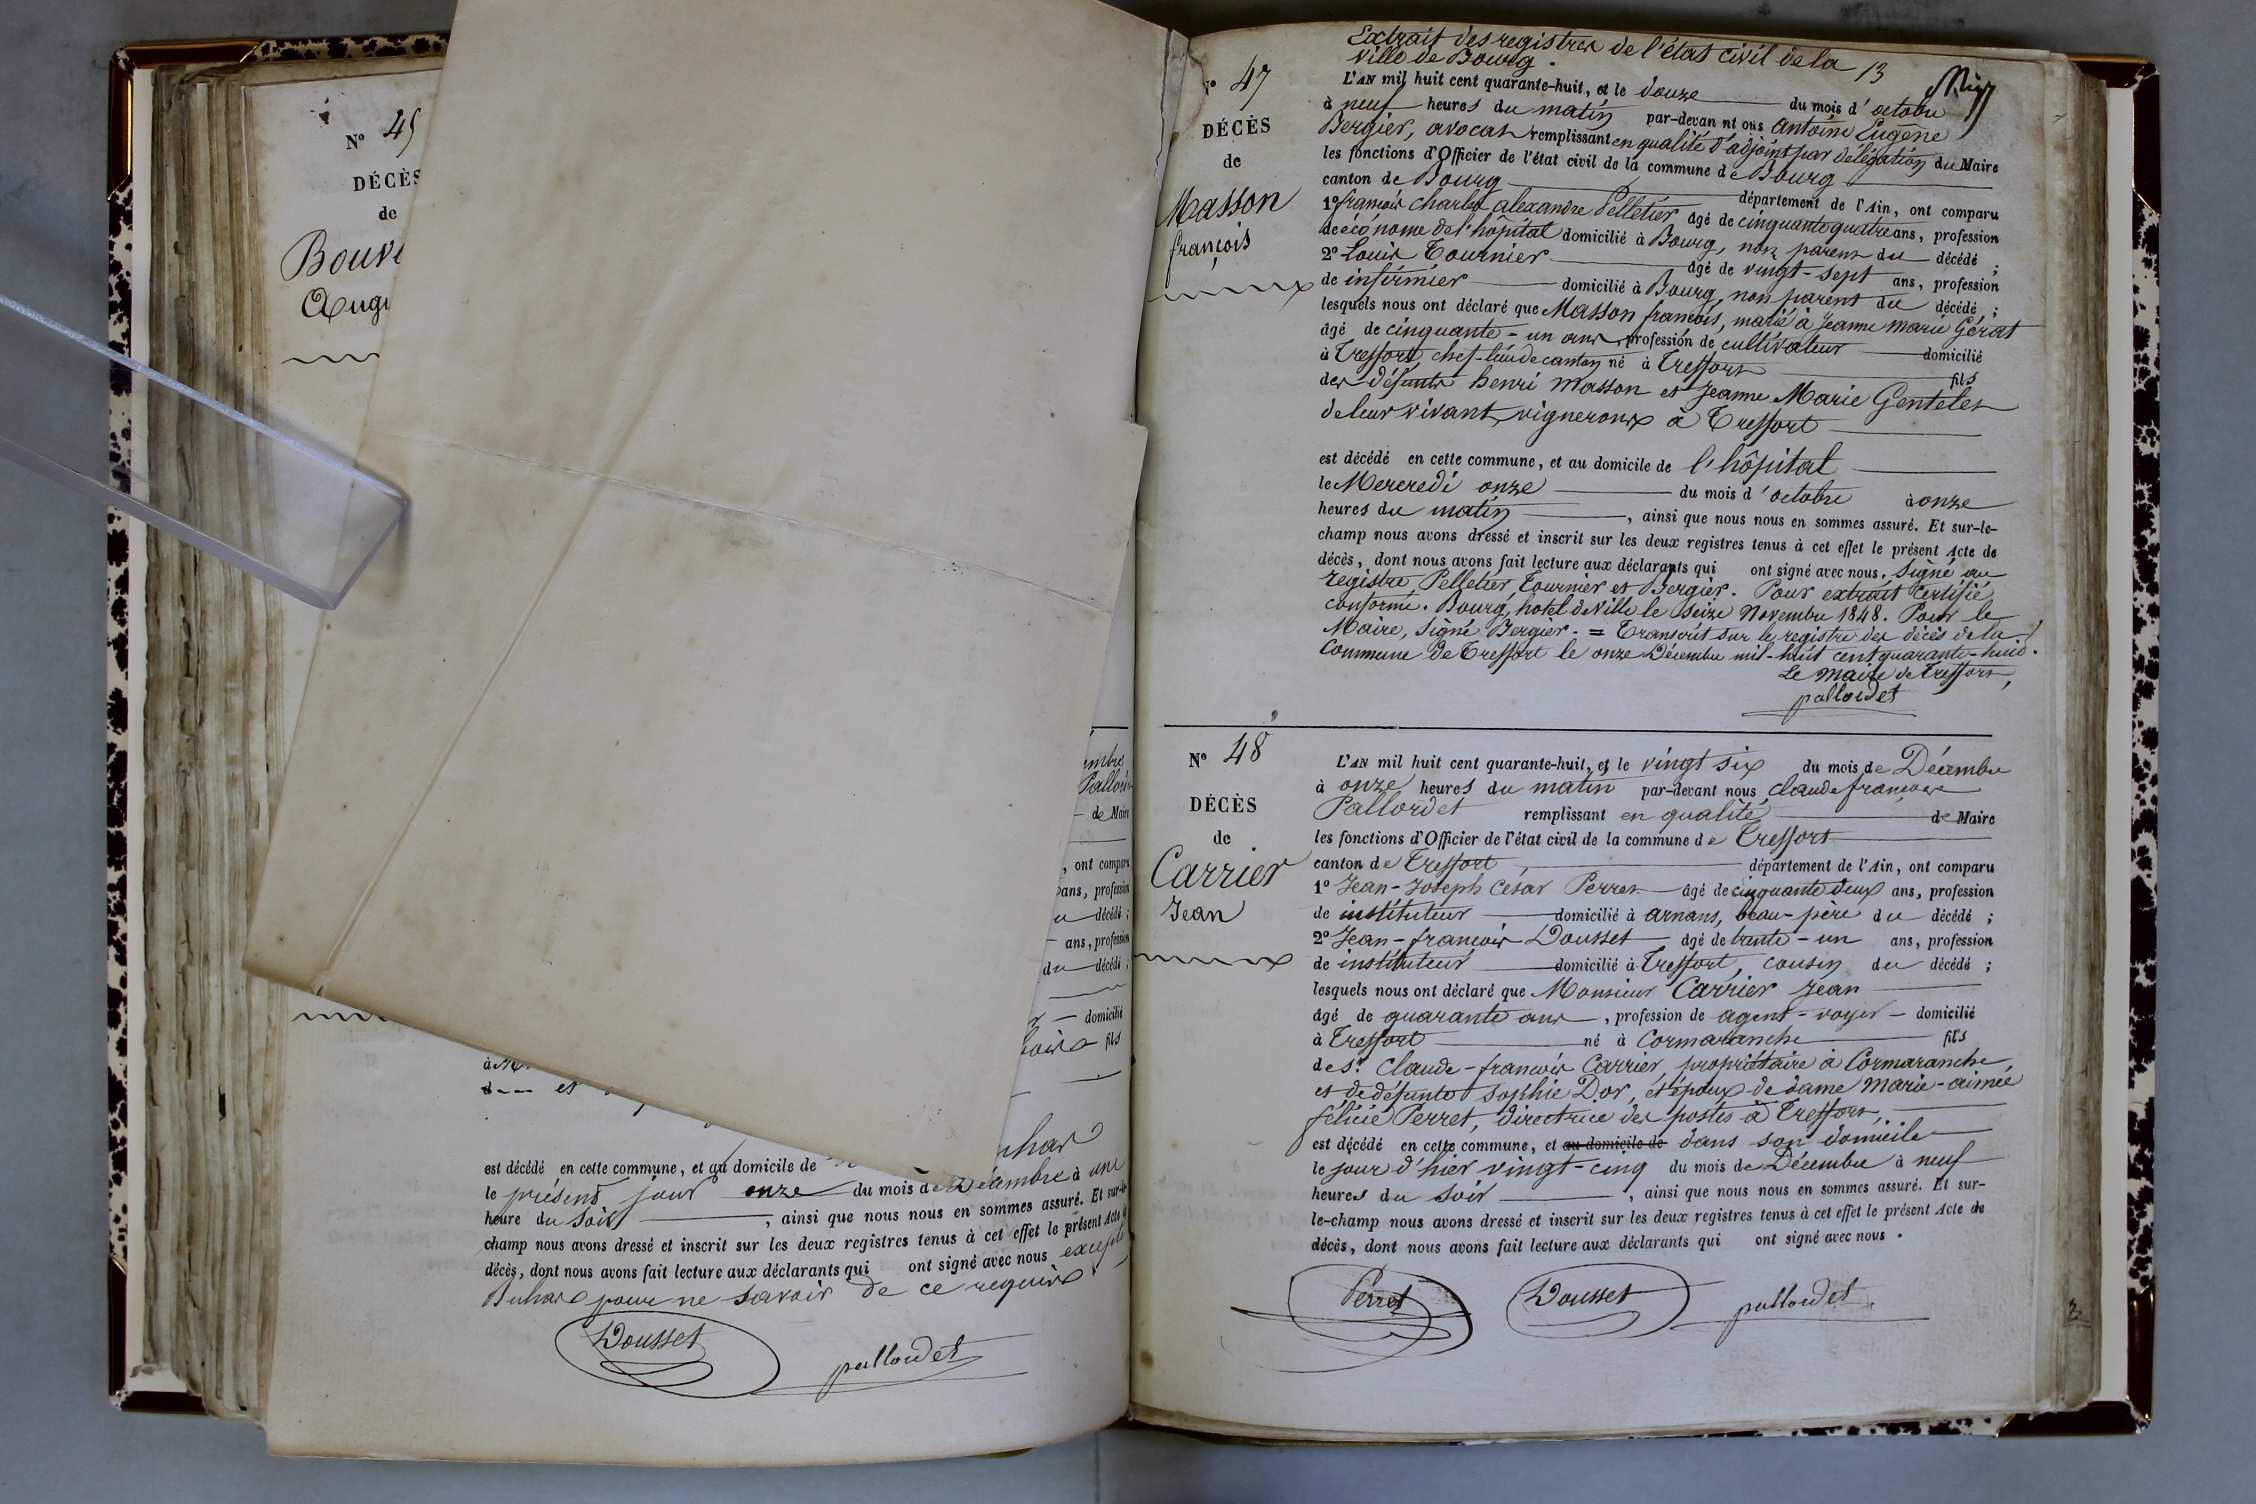 N° 45
DÉCÈS
de
Bouv
Augu
embre
Pallord
de Maire
, ont comparu
ans, profession
u décédé ;
ans, profession
du décédé ;
domicilié
fils
à
et
est décédé en cette commune, et au domicile de
le présent jour onze du mois de Décembre à une
heure du soir , ainsi que nous nous en sommes assuré. Et sur-le-
champ nous avons dressé et inscrit sur les deux registres tenus à cet effet le présent Acte de
décès, dont nous avons fait lecture aux déclarants qui ont signé avec nous excepté
Buhar pour ne savoir de ce requis
Dousset pallordet
Extrait des registres de l'état civil de la 13
ville de Bourg.
N° 47
DÉCÈS
de
Masson
françois
L'AN mil huit cent quarante-huit, et le douze du mois d'octobre
à neuf heures du matin par-devan nt ous Antoine Eugène
Bergier, avocat remplissant en qualité d'adjoint par délégation du Maire
les fonctions d'Officier de l'état civil de la commune de Bourg
canton de Bourg département de l'Ain, ont comparu
1° françois charles alexandre Pelletier âgé de cinquante quatre ans, profession
de économe de l'hôpital domicilié à Bourg, non parent du décédé ;
2° Louis Tournier âgé de vingt-sept ans, profession
de infirmier domicilié à Bourg, non parent du décédé ;
lesquels nous ont déclaré que Masson françois, marié à Jeanne marie Gérat
âgé de cinquante-un ans, profession de cultivateur domicilié
à Treffort, chef-lieu de canton né à Treffort fils
des défunts henri Masson et Jeanne Marie Gentelet
de leur vivant, vignerons à Treffort
est décédé en cette commune, et au domicile de l'hôpital
le Mercredi onze du mois d'octobre à onze
heures du matin , ainsi que nous nous en sommes assuré. Et sur-le-
champ nous avons dressé et inscrit sur les deux registres tenus à cet effet le présent Acte de
décès, dont nous avons fait lecture aux déclarants qui ont signé avec nous. Signé au
registre Pelletier, Tournier et Bergier. Pour extrait certifié
conforme. Bourg, hotel de ville le seize Novembre 1848. Pour le
Maire, Signé Bergier. = Transcrit sur le registre des décès de la
Commune de Treffort le onze Décembre mil-huit cent quarante-huit.
Le maire de Treffort,
pallordet
N° 48
DÉCÈS
de
Carrier
Jean
L'AN mil huit cent quarante-huit, et le vingt six du mois de Décembre
à onze heures du matin par-devant nous, claude françois
Pallordet remplissant en qualité de Maire
les fonctions d'Officier de l'état civil de la commune de Treffort
canton de Treffort, département de l'Ain, ont comparu
1° Jean-Joseph César Perret âgé de cinquante deux ans, profession
de instituteur domicilié à arnans, beau-père du décédé ;
2° Jean-françois Dousset âgé de trente-un ans, profession
de instituteur domicilié à Treffort, cousin du décédé ;
lesquels nous ont déclaré que Monsieur Carrier Jean
âgé de quarante ans , profession de agent-voyer domicilié
à Treffort né à Cormaranche fils
de sr. Claude-françois Carrier, propriétaire à Cormaranche
et de défunte Sophie Dor, et époux de dame Marie-aimée
félicie Perret, directrice des postes à Treffort,
est décédé en cette commune, et au domicile de dans son domicile
le jour d'hier vingt-cinq du mois de Décembre à neuf
heures du soir , ainsi que nous nous en sommes assuré. Et sur-
le-champ nous avons dressé et inscrit sur les deux registres tenus à cet effet le présent Acte de
décès, dont nous avons fait lecture aux déclarants qui ont signé avec nous.
Perret Dousset pallordet